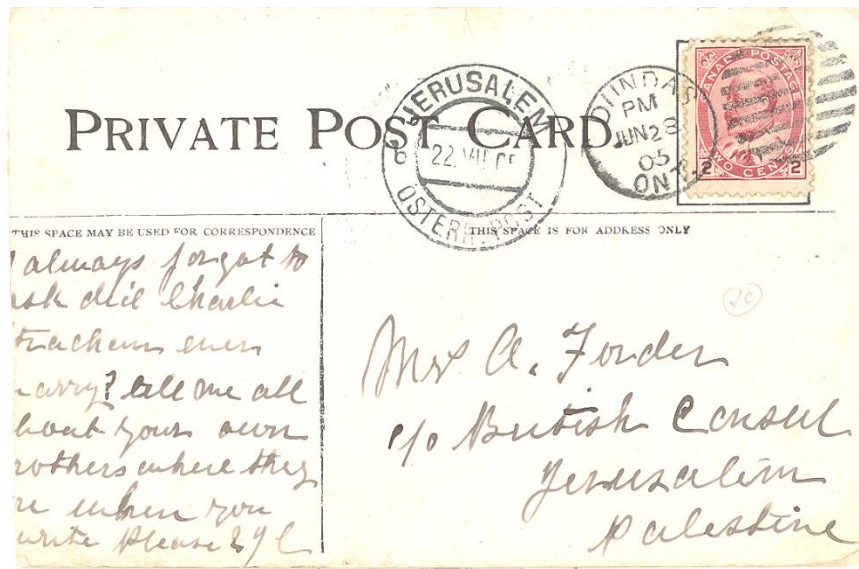 PRIVATE POST CARD.
JERUSALEM
22. VII. 05
ÖSTERR. POST
DUNDAS
PM
JUN 28
05
ONT.
CANADA POSTAGE
2 TWO CENTS 2
THIS SPACE MAY BE USED FOR CORRESPONDENCE
THIS SPACE IS FOR ADDRESS ONLY
I always forgot to
ask did Charlie
Strachan ever
marry? tell me all
about your own
brothers where they
are when you
write please
Mrs A. Forder
c/o British Consul
Jerusalem
Palestine